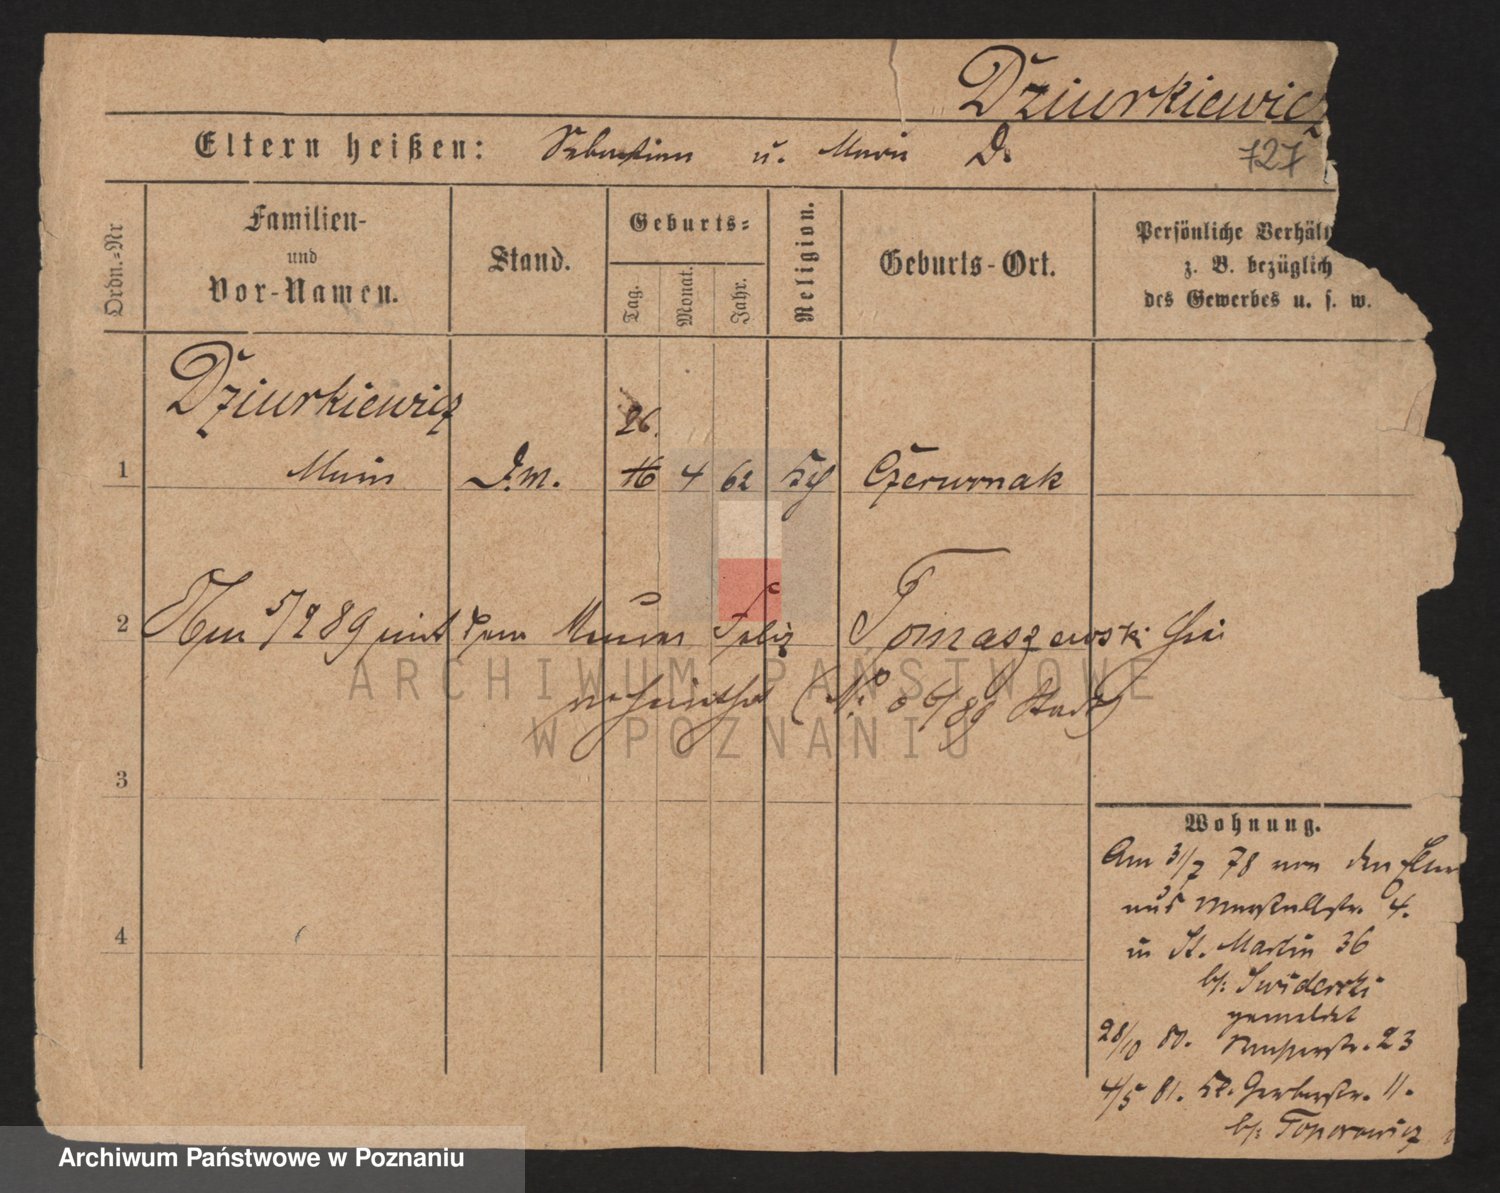 Dziurkiewicz
Eltern heißen: Sebastian u. Marie D.
727
Ordn.-Nr
Familien-
und
Vor-Namen.
Stand.
Geburts-
Tag.
Monat.
Jahr.
Religion.
Geburts-Ort.
Persönliche Verhält
z. B. bezüglich
des Gewerbes u. s. w.
Dziurkiewicz
26.
1 Marie D.M. 16 4 62 Kth Czerwonak
2 Am 5/2 89 mit dem Maurer Felix Tomaszewski hier
verheirathet (No 66/89 Stadt)
3
Wohnung.
Am 31/7 78 von den Eltern
aus Marstallstr. 4.
4
in St. Martin 36
b/: Swiderski
gemeldet
28/10 80. 23
4/5 81. Kl. Gerberstr. 11.
b/: Toporowicz
ARCHIWUM PAŃSTWOWE
W POZNANIU
Archiwum Państwowe w Poznaniu